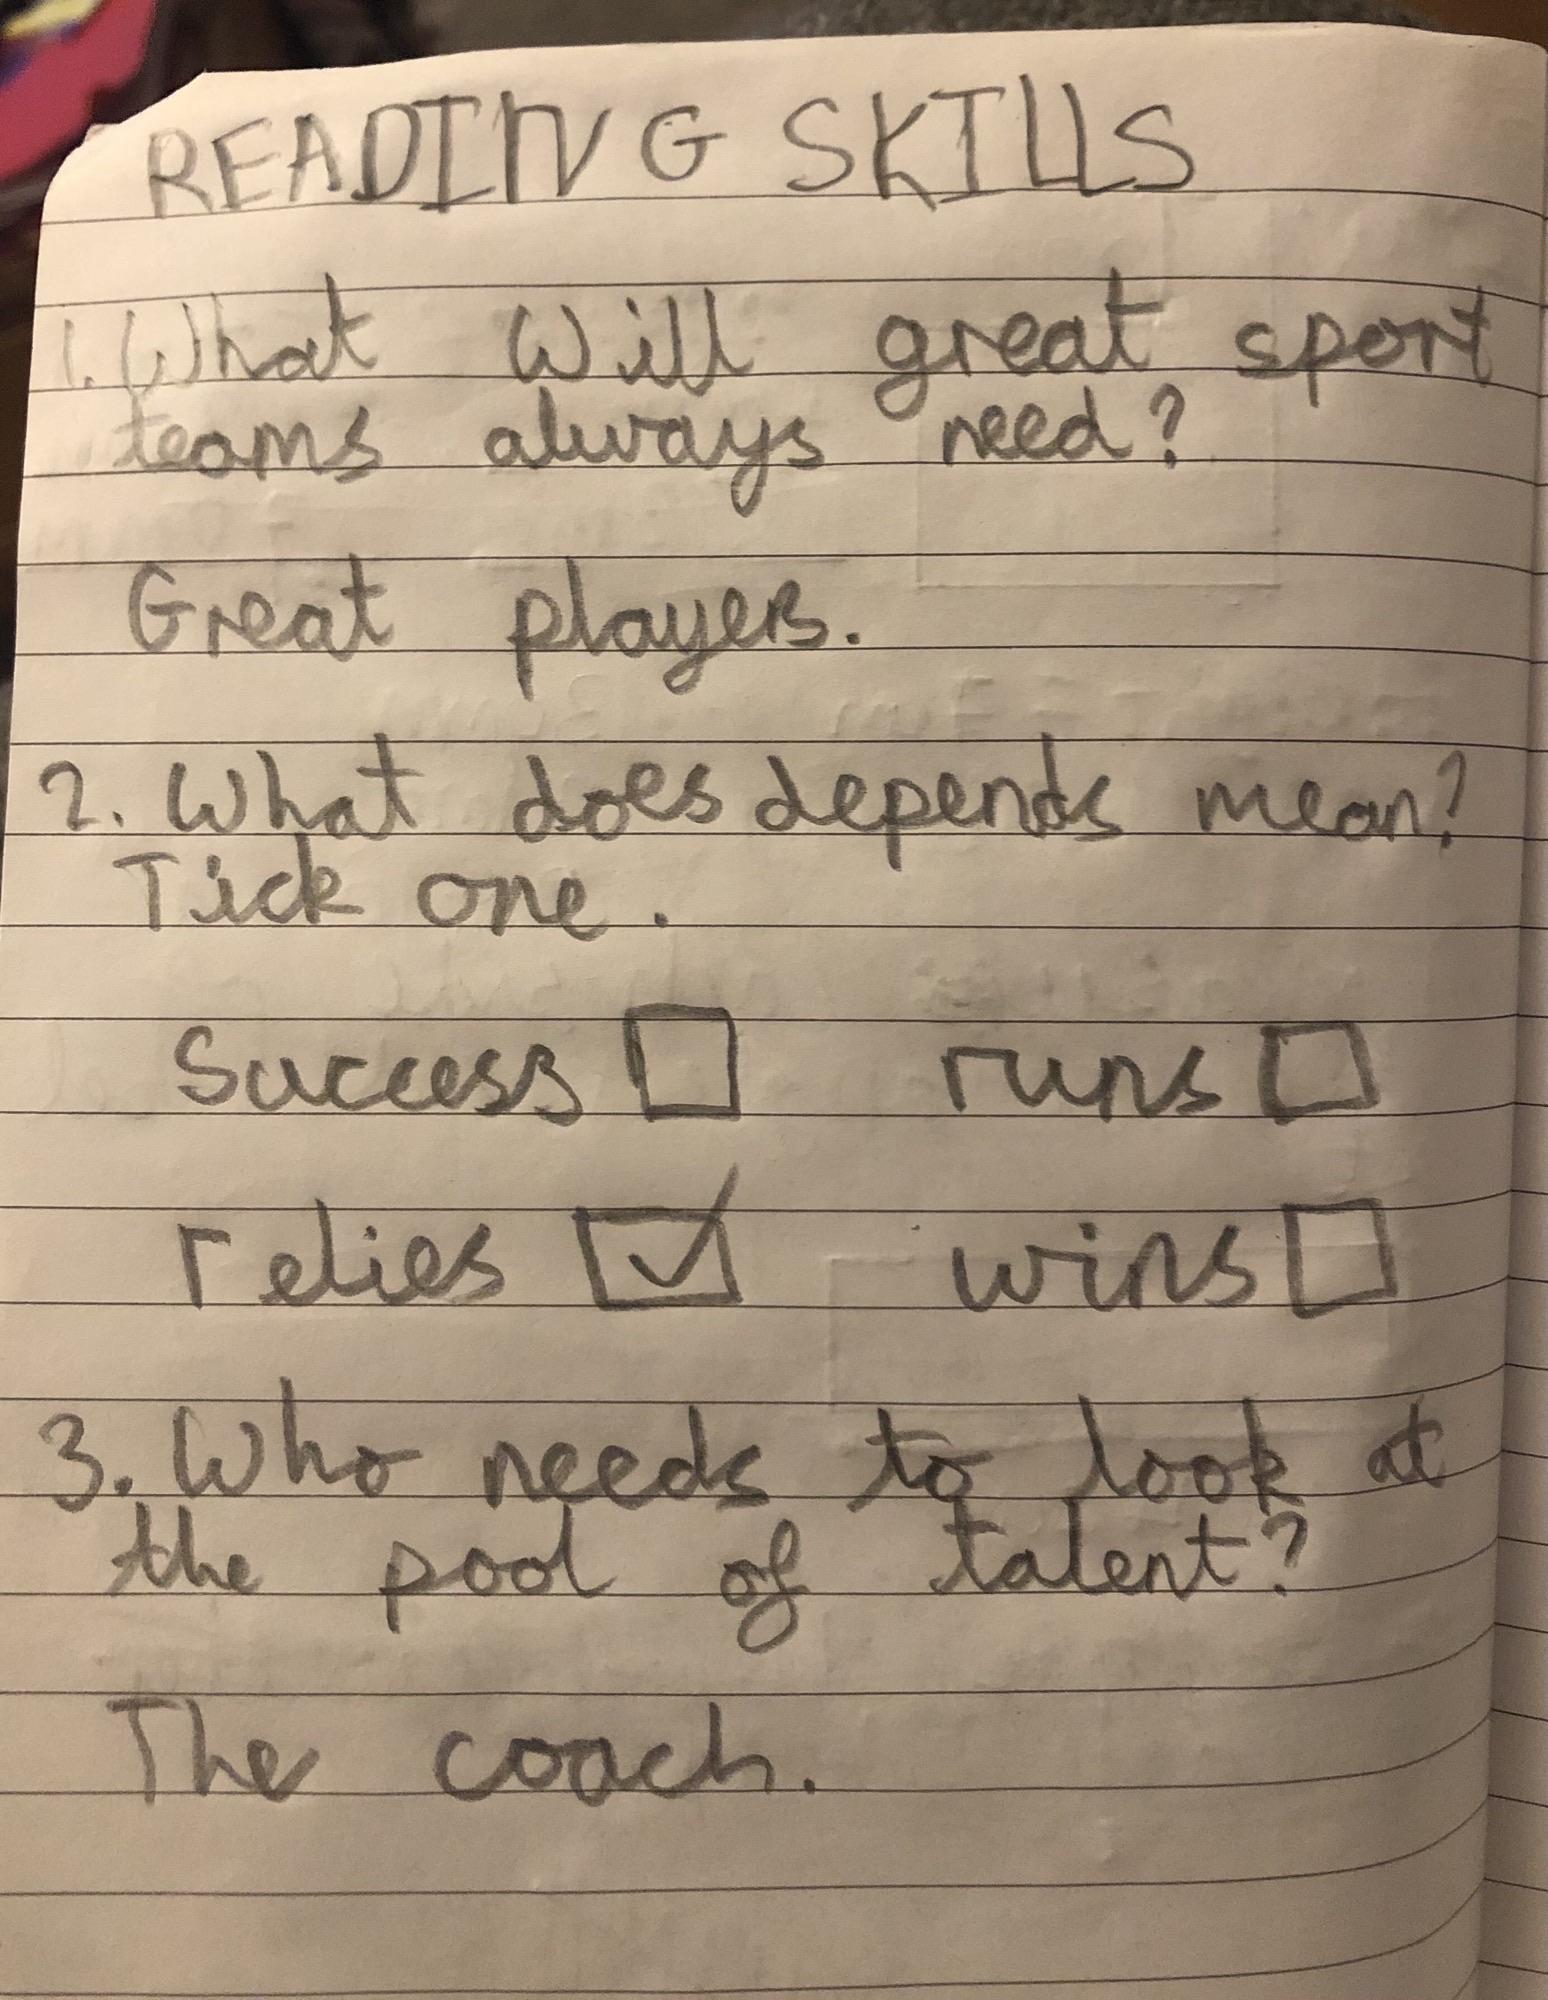 READING SKILLS
1. What Will great sport
teams always need?
Great players.
2. What does depends mean?
Tick one.
Success ☐ runs ☐
relies ☑ wins ☐
3. Who needs to look at
the pool of talent?
The coach.